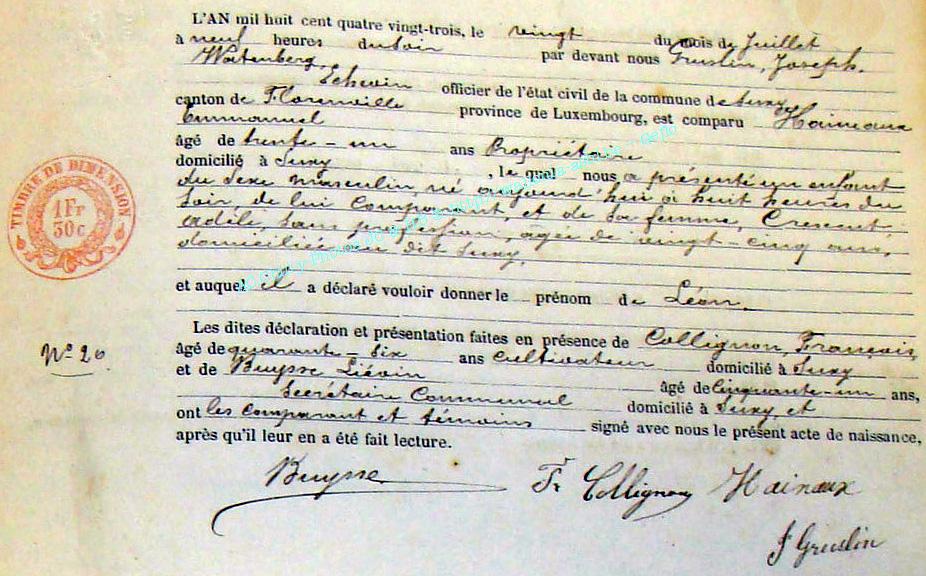 L'AN mil huit cent quatre vingt-trois, le vingt du mois de Juillet
à neuf heures du soir par devant nous Gruslin, Joseph,
Échevin officier de l'état civil de la commune de Suxy
canton de Florenville province de Luxembourg, est comparu Hainaux
Emmanuel
âgé de trente-un ans Propriétaire
domicilié à Suxy, le quel nous a présenté un enfant
du sexe masculin, né aujourd'hui à huit heures du
soir, de lui comparant, et de sa femme, Crescent
Adèle, sans profession, agée de vingt-cinq ans,
domiciliée au dit Suxy.
et auquel il a déclaré vouloir donner le prénom de Léon.
Les dites déclaration et présentation faites en présence de Collignon, François,
âgé de quarante-six ans cultivateur domicilié à Suxy
et de Buysse Liévin âgé de cinquante-un ans,
Secrétaire Communal domicilié à Suxy, et
ont les comparant et témoins signé avec nous le présent acte de naissance,
après qu'il leur en a été fait lecture.
TIMBRE DE DIMENSION
1 Fr
30 c
N° 20
Buysse Fr Collignon Hainaux
J Gruslin